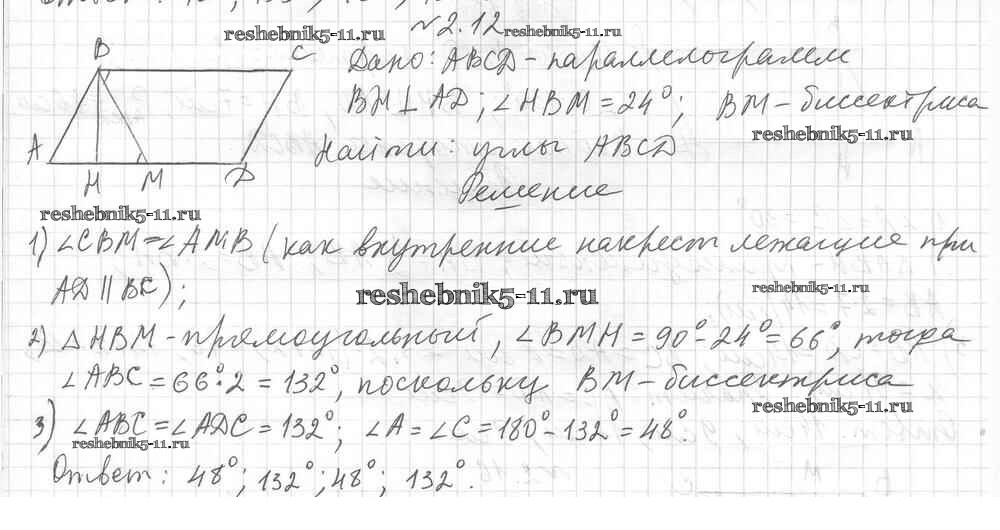 №2.12 reshebnik5-11.ru
reshebnik5-11.ru
B C
A H M D
Дано: ABCD - параллелограмм
BH ⊥ AD; ∠HBM = 24°; BM - биссектриса
reshebnik5-11.ru
Найти: углы ABCD
Решение
reshebnik5-11.ru
1) ∠CBM = ∠AMB (как внутренние накрест лежащие при
AD || BC);
reshebnik5-11.ru
reshebnik5-11.ru
2) △HBM - прямоугольный, ∠BMH = 90° - 24° = 66°, тогда
∠ABC = 66° · 2 = 132°, поскольку BM - биссектриса
reshebnik5-11.ru
3) ∠ABC = ∠ADC = 132°; ∠A = ∠C = 180° - 132° = 48°.
reshebnik5-11.ru
Ответ: 48°; 132°; 48°; 132°.